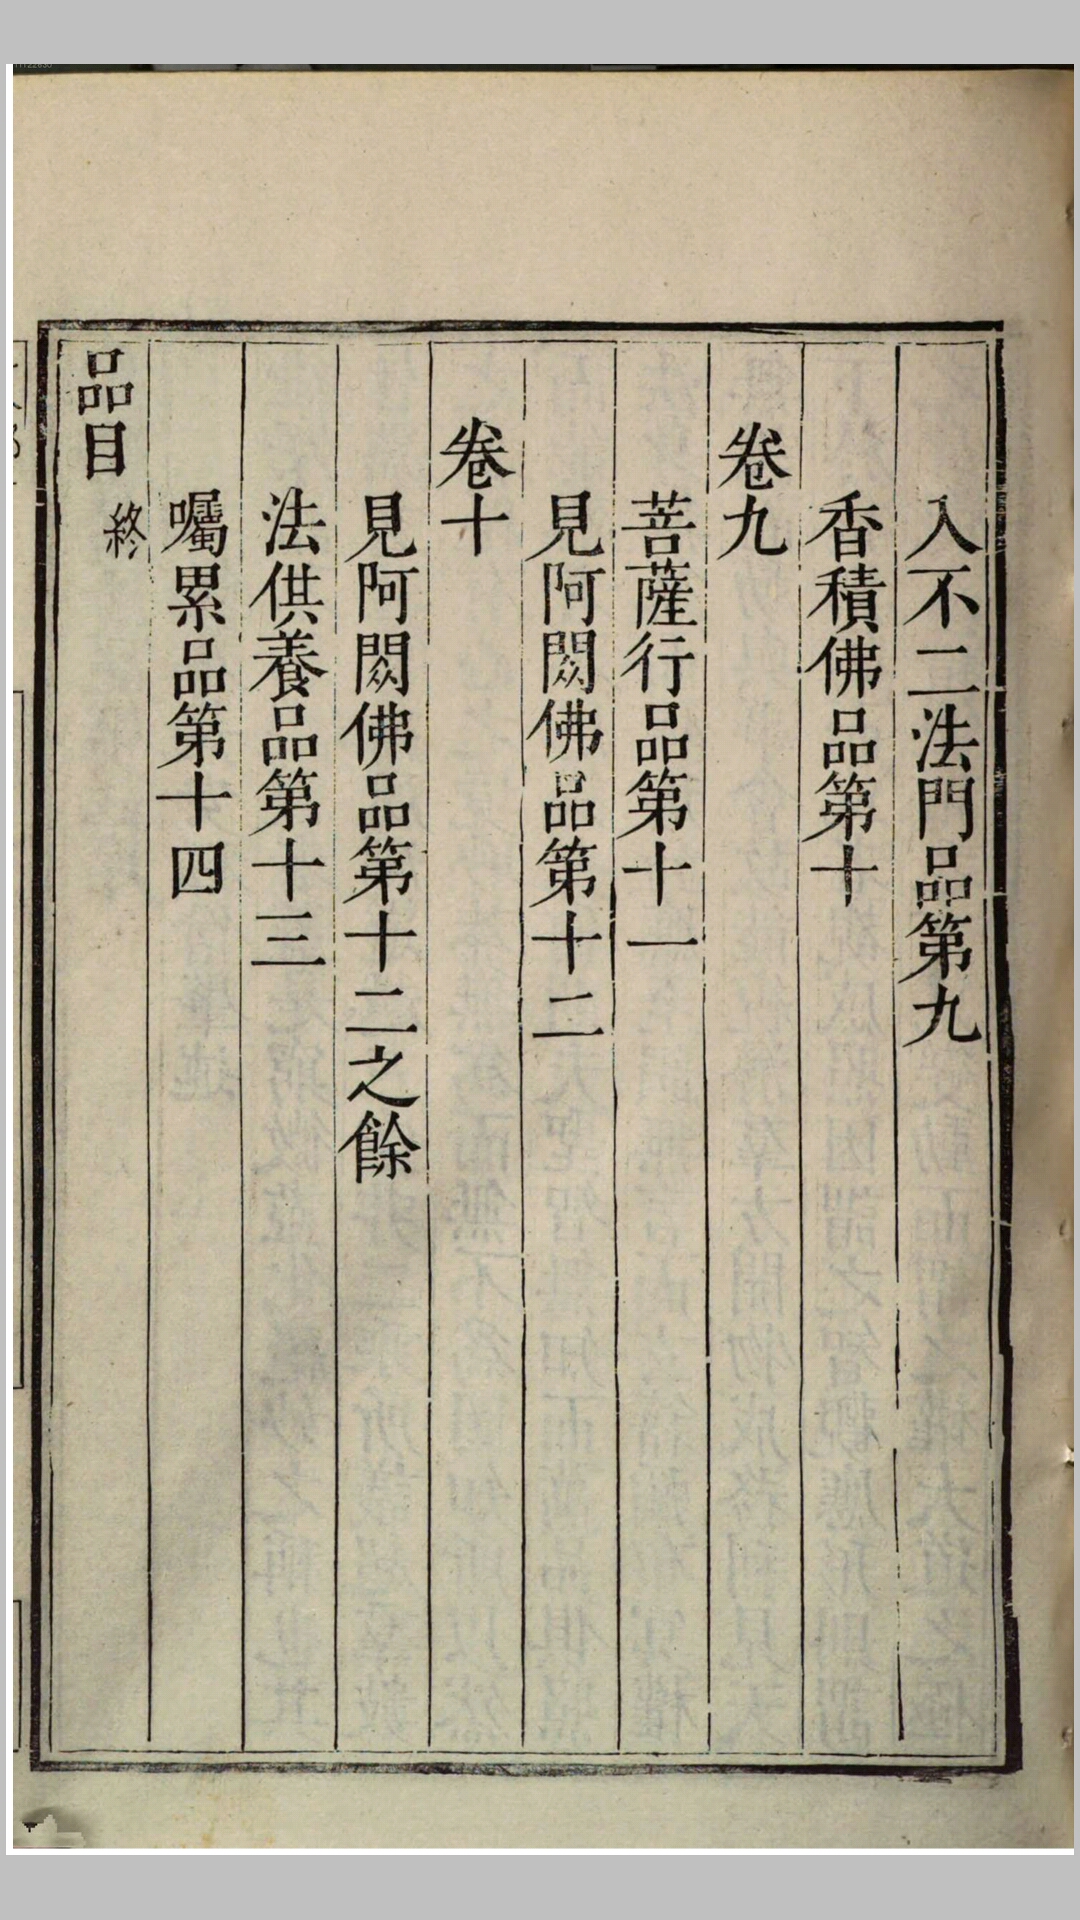 入不二法門品第九
香積佛品第十
卷九
菩薩行品第十一
見阿閦佛品第十二
卷十
見阿閦佛品第十二之餘
法供養品第十三
囑累品第十四
品目終